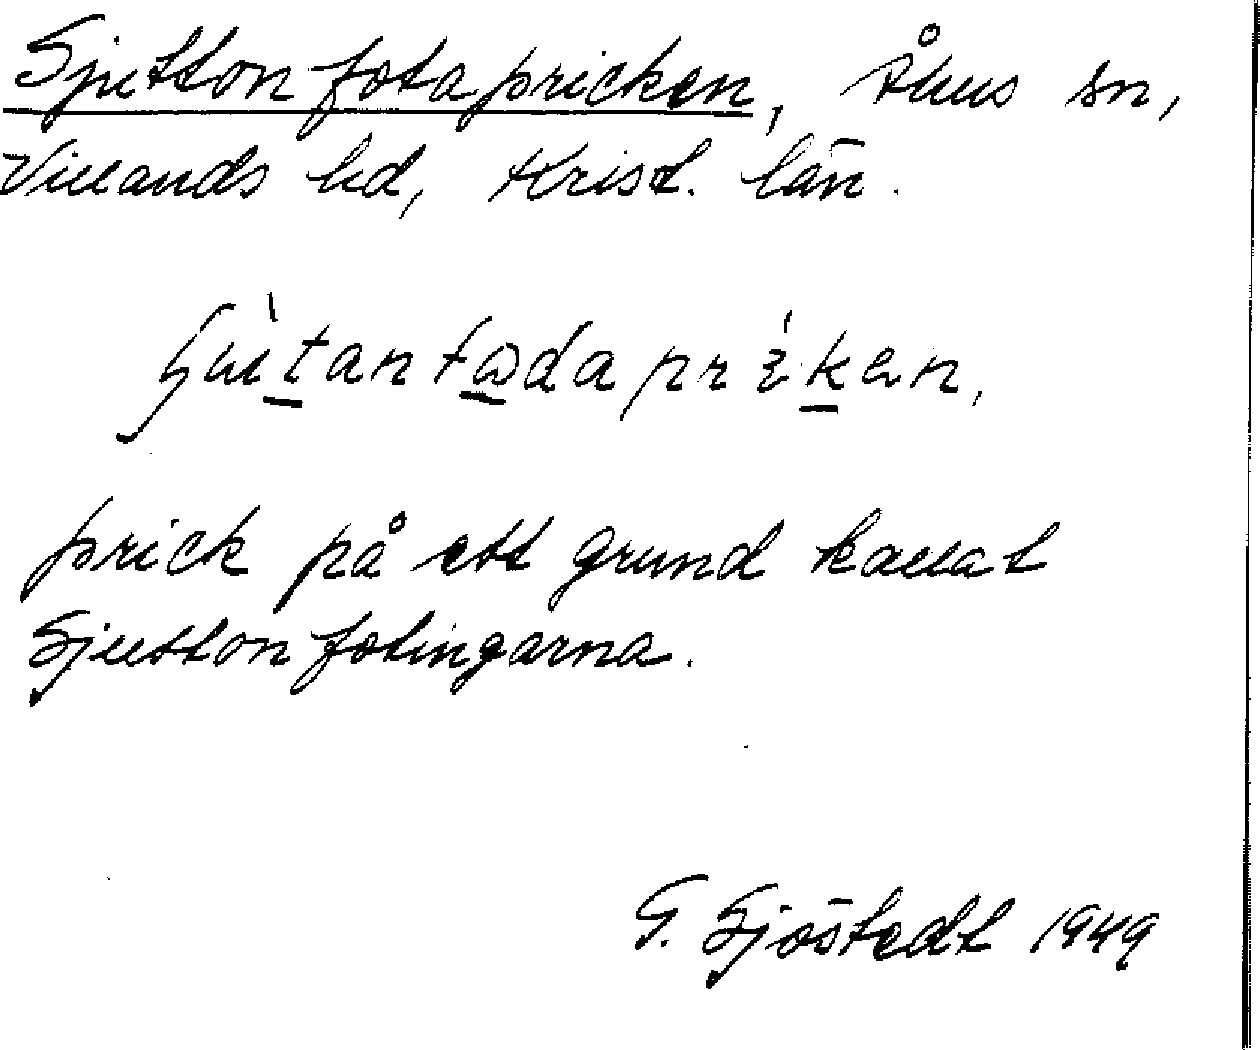 Sjuttonfotapricken, Åhus sn,
Villands hd, Krist. län.
prick på ett grund kallat
Sjuttonfotingarna.
G. Sjöstedt 1949